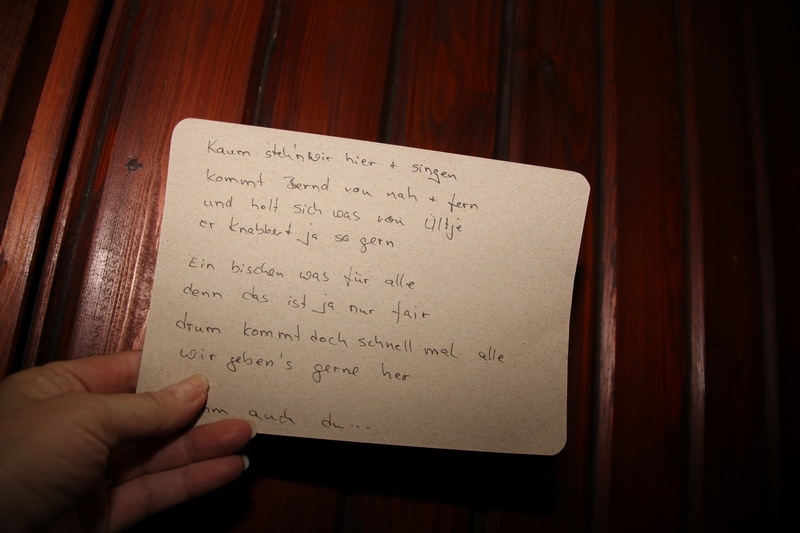 Kaum steh'n wir hier + singen
kommt Bernd von nah + fern
und holt sich was von Ültje
er knabbert ja so gern
Ein bischen was für alle
denn das ist ja nur fair
drum kommt doch schnell mal alle
wir geben's gerne her
auch du...